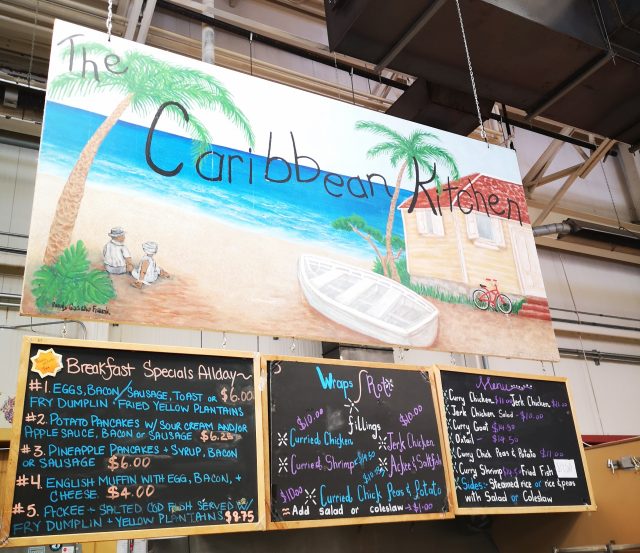 The
Caribbean Kitchen
Breakfast Specials Allday~
#1. EGGS, BACON/SAUSAGE, TOAST OR $6.00
FRY DUMPLIN + FRIED YELLOW PLANTAINS
#2. POTATO PANCAKES W/ SOUR CREAM AND/OR
APPLE SAUCE, BACON OR SAUSAGE $6.25
#3. PINEAPPLE PANCAKES + SYRUP, BACON
OR SAUSAGE $6.00
#4. ENGLISH MUFFIN WITH EGG, BACON, +
CHEESE $4.00
#5. ACKEE + SALTED COD FISH SERVED W/
FRY DUMPLIN + YELLOW PLANTAINS $8.75
Wraps Roti
fillings
$10.00 $10.00
Curried Chicken
Jerk Chicken
Curried Shrimp
Ackee & Saltfish
$10.00 Curried Chick Peas & Potato
= Add salad or coleslaw → $1.00
Menu
Curry Chicken Jerk Chicken
Jerk Chicken Salad $10.00
Curry Goat $14.50
Oxtail $14.50
Curry Chick Peas & Potato $11.00
Curry Shrimp Fried Fish
Sides:- Steamed rice or rice & peas
with Salad or Coleslaw